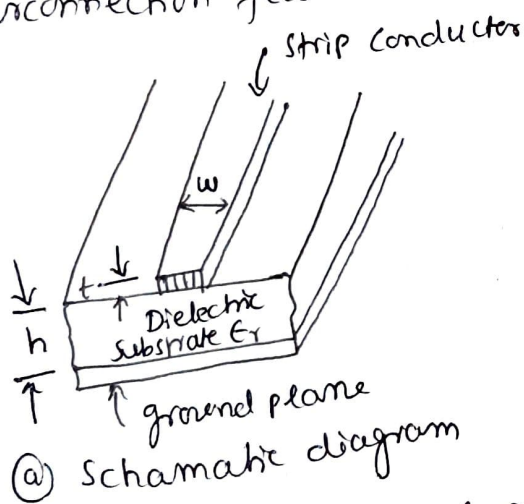 strip conductor
w
t
h
Dielectric
substrate Er
ground plane
(a) Schamatic diagram